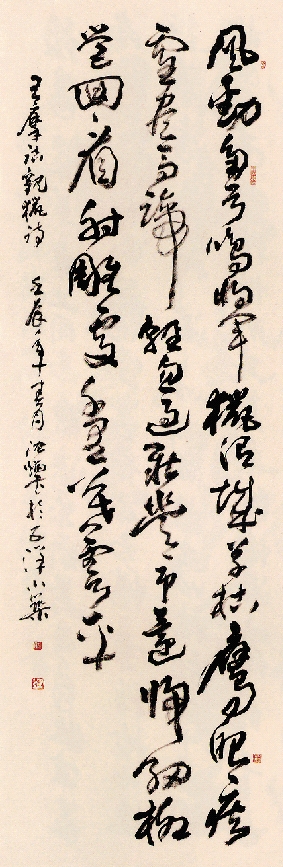 風勁角弓鳴將軍獵渭城草枯鷹眼疾
雪盡馬蹄輕忽過新豐市還歸細柳
營回看射雕處千里暮雲平
王摩詰觀獵詩 壬辰年